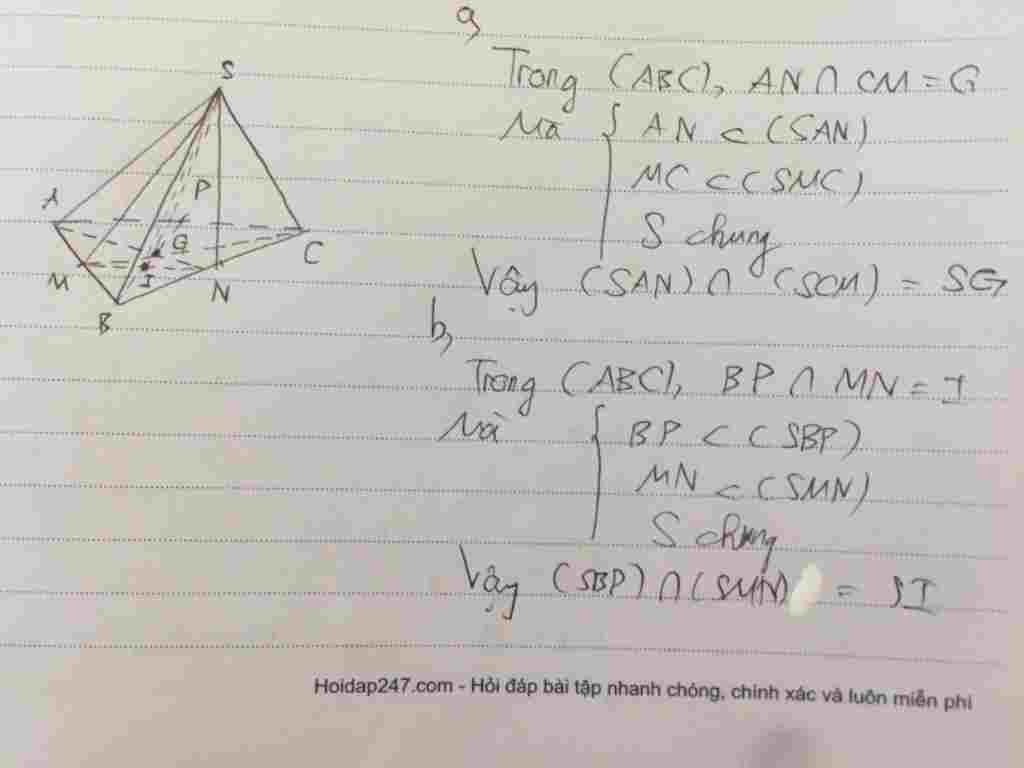 S
A
P
G
C
M
I
N
B
a,
Trong (ABC), AN ∩ CM = G
Mà { AN ⊂ (SAN)
MC ⊂ (SMC)
S chung
Vậy (SAN) ∩ (SCM) = SG
b,
Trong (ABC), BP ∩ MN = I
Mà { BP ⊂ (SBP)
MN ⊂ (SMN)
S chung
Vậy (SBP) ∩ (SMN) = SI
Hoidap247.com - Hỏi đáp bài tập nhanh chóng, chính xác và luôn miễn phí